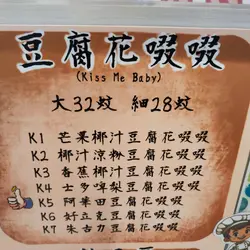 豆腐花啜啜
(Kiss Me Baby)
大32蚊 細28蚊
K1 芒果椰汁豆腐花啜啜
K2 椰汁涼粉豆腐花啜啜
K3 香蕉椰汁豆腐花啜啜
K4 士多啤梨豆腐花啜啜
K5 阿華田豆腐花啜啜
K6 好立克豆腐花啜啜
K7 朱古力豆腐花啜啜